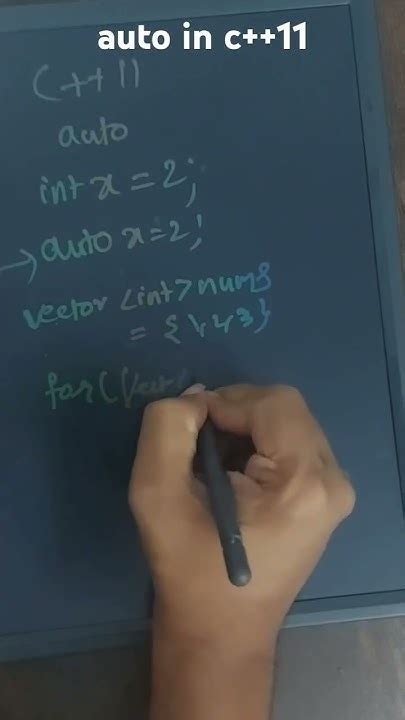 auto in c++11
C++11
auto
int x = 2;
→ auto x=2;
vector <int> nums
= {1,2,3}
for(